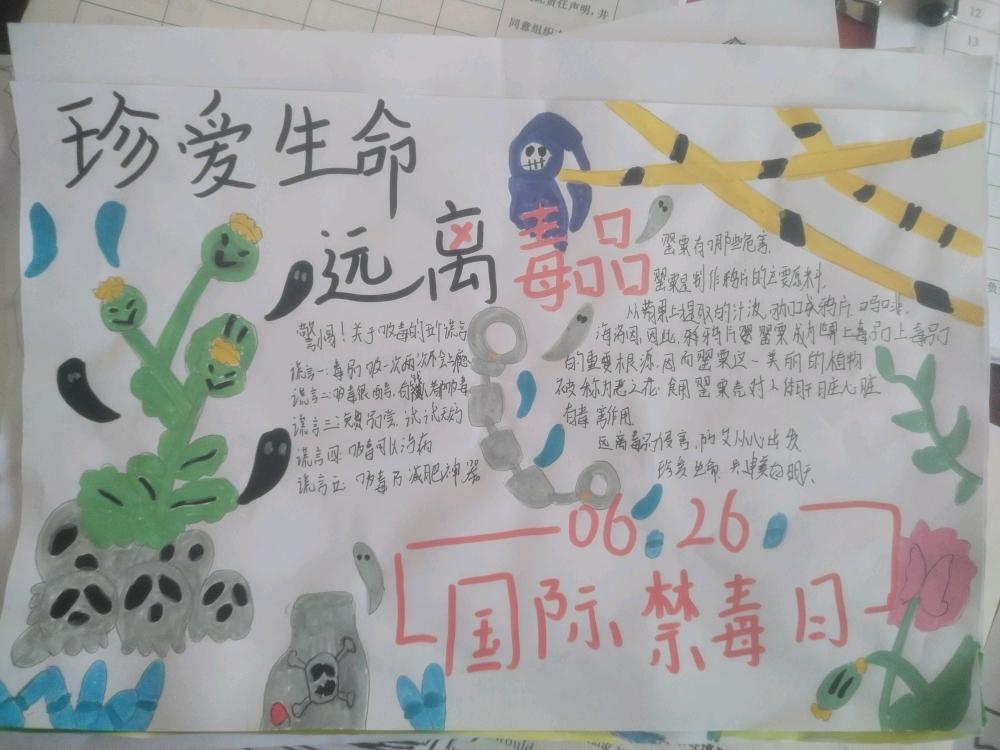 此责任声明，并
同意组织
12
13
珍爱生命
远离毒品
警惕！关于吸毒的五个谎言
谎言一：毒品吸一次两次不会上瘾
谎言二：吸毒很酷，白领都吸毒
谎言三：免费品尝，试试无妨
谎言四：吸毒可以治病
谎言五：吸毒乃减肥神器
罂粟有哪些危害
罂粟是制作鸦片的主要原料，
从蒴果上提取的汁液，可加工成鸦片、吗啡、
海洛因，因此，鸦片罂粟成为世界上毒品
的重要根源，因而罂粟这一美丽的植物
被称为恶之花，食用罂粟壳对人体肝脏心脏
有毒害作用。
远离毒品侵害，从心出发
珍爱生命，共建美的明天。
06.26
国际禁毒日
would